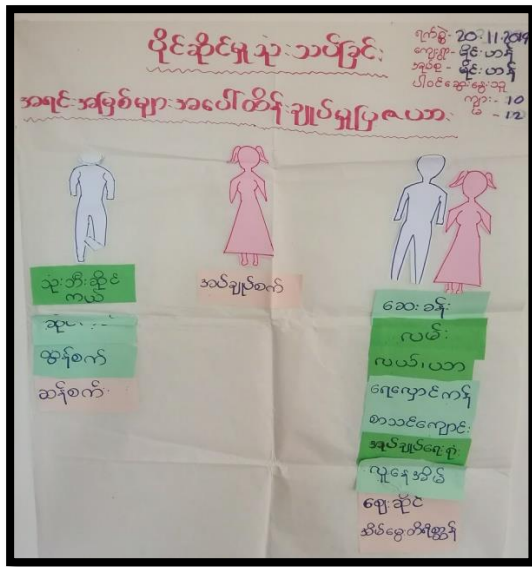 ပိုင်ဆိုင်မှုသုံးသပ်ခြင်း
ရက်စွဲ - 20.11.2019
ကျေးရွာ - မိုင်းဟန်
အုပ်စု - မိုင်းဟန်
ပါဝင်ဆွေးနွေးသူ
ကျား - 10
- 12
အရင်းအမြစ်များအပေါ်ထိန်းချုပ်မှုပြဇယား
သုံးဘီးဆိုင်
ကယ်
ထွန်စက်
ဆန်စက်
အပ်ချုပ်စက်
ဆေးခန်း
လမ်း
လယ်၊ယာ
ရေလှောင်ကန်
စာသင်ကျောင်း
အုပ်ချုပ်ရေးရုံး
လူနေအိမ်
ဈေးဆိုင်
အိမ်မွေးတိရိစ္ဆာန်